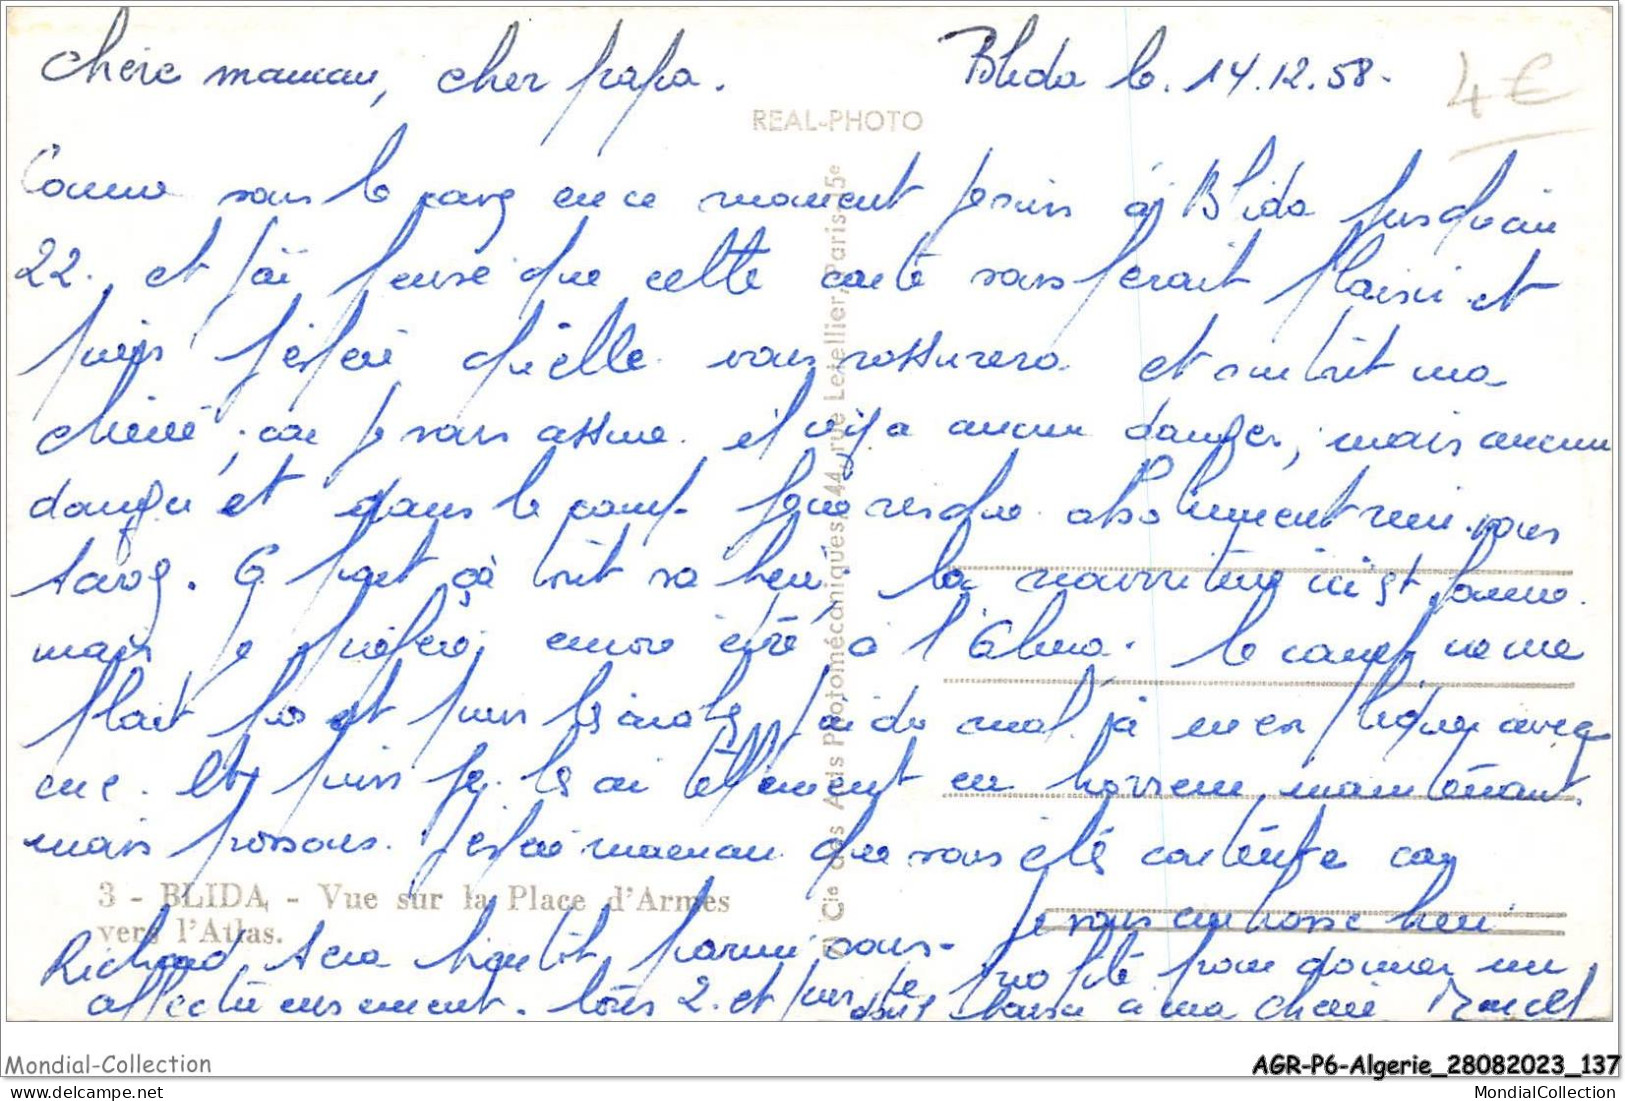 chère maman, cher papa.
Blida le. 14.12.58.
4 €
REAL-PHOTO
Comme vous le savez en ce moment je suis à Blida jusqu'au
22. et j'ai pensé que cette carte vous ferait plaisir et
puis j'espère qu'elle vous rassurera et surtout ma
chérie, car je vous assure il n'y a aucun danger, mais aucun
danger et dans le camp je ne risque absolument rien. vous
savez. a part ça tout va bien. la nourriture ici est bonne.
mais je préfère encore être à l'Alma. le camp ne me
plait pas et puis les j'ai du mal à en avec
me. et puis je les ai tellement en horreur maintenant.
mais passons. j'espère maman que vous été contente car
Richard sera bientôt parmi vous. je vous embrasse bien
affectueusement. tous 2. et puis je profite pour donner un
doux baiser à ma chérie Marcel
3 - BLIDA - Vue sur la Place d'Armes
vers l'Atlas.
Cie des Arts Photomécaniques, 44, rue Letellier, Paris-15e
Mondial-Collection
AGR-P6-Algerie_28082023_137
MondialCollection
www.delcampe.net